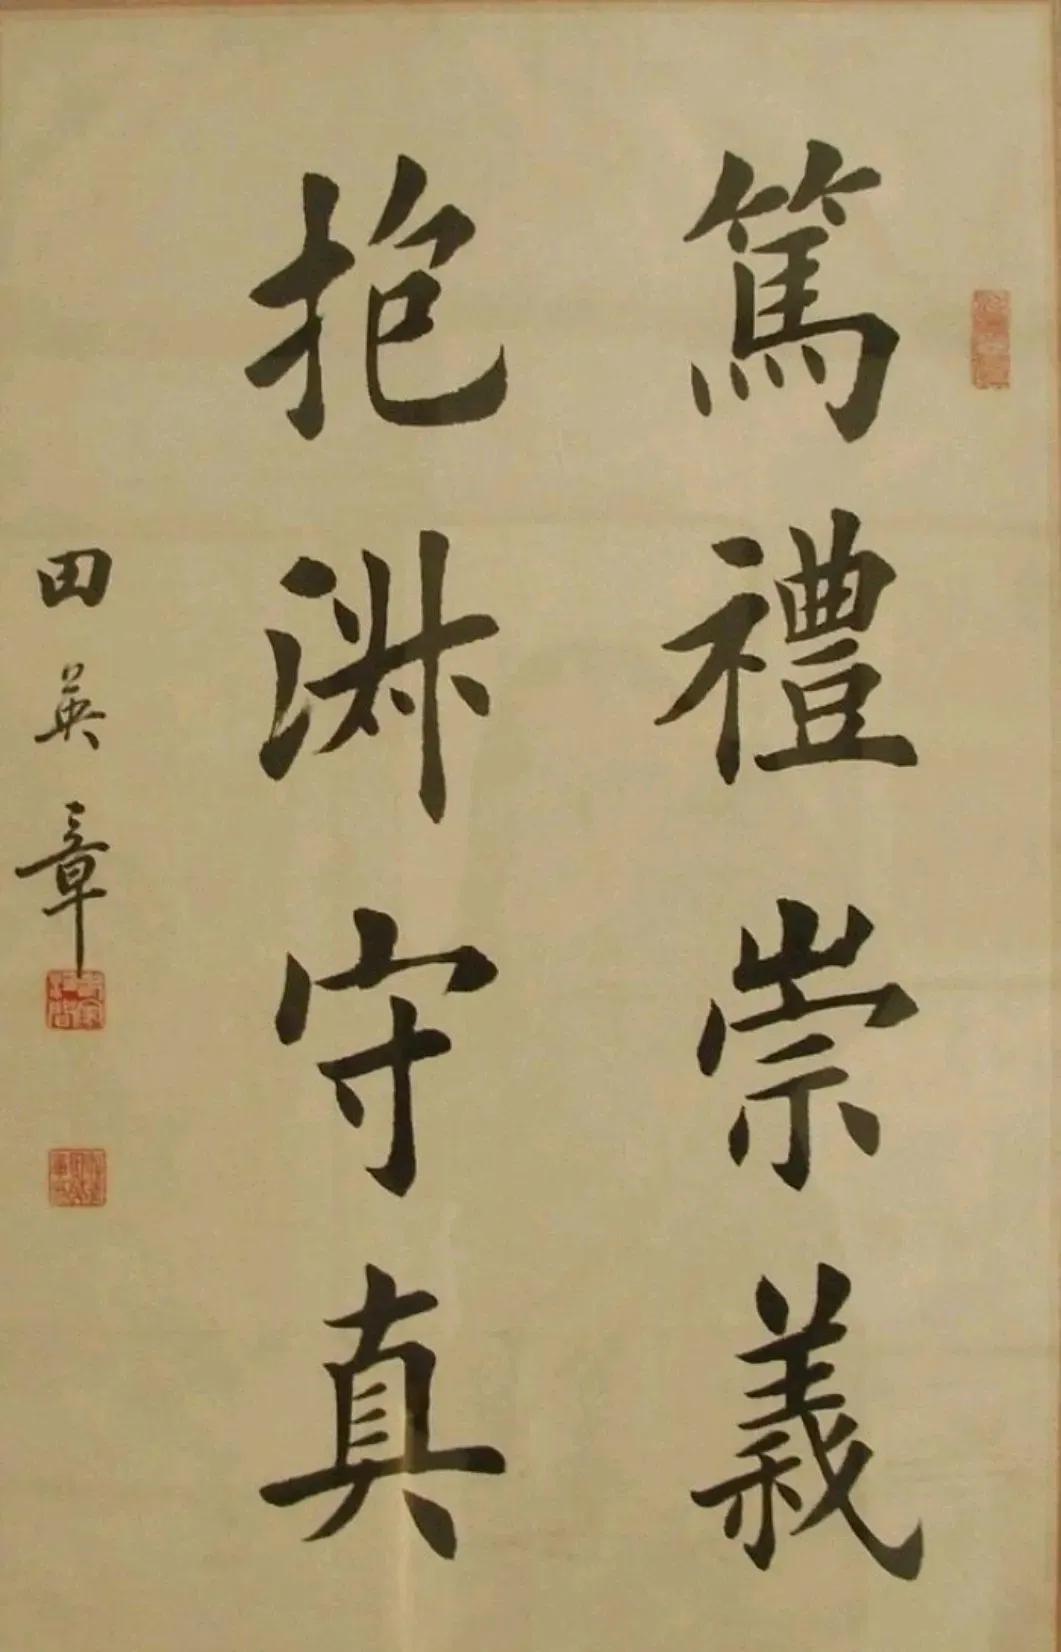 篤禮崇義
抱淑守真
田英章